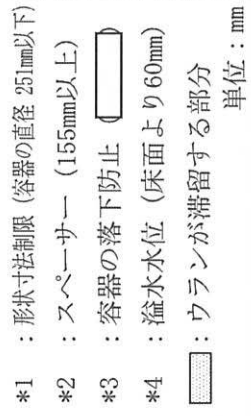 *1 : 形状寸法制限 (容器の直径 251mm以下)
*2 : スペーサー (155mm以上)
*3 : 容器の落下防止
*4 : 溢水水位 (床面より60mm)
: ウランが滞留する部分
単位 : mm